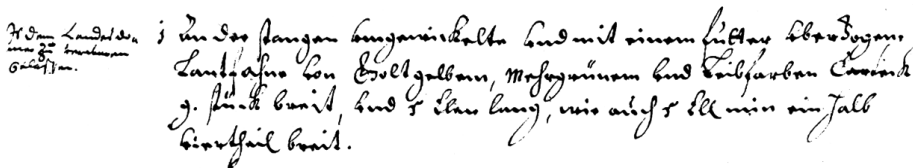 Ist dem Landes
gelassen.
1 An der stangen umgewickelte und mit einem futter uberzogene
Lantfahne von Goltgelbem, Mehrgrünem und Leibfarben
9. stuck breit, und 5 Elen lang, wie auch 5 Ell min ein halb
viertheil breit.